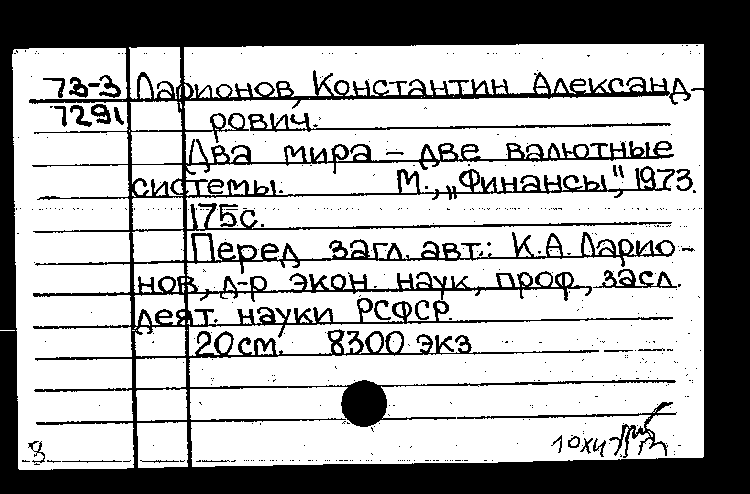 73-3 Ларионов, Константин Александ-
7291 рович.
Два мира – две валютные
системы. М., „Финансы", 1973.
175с.
Перед загл. авт.: К.А. Ларио-
нов, д-р экон. наук, проф., засл.
деят. науки РСФСР.
20см. 8300 экз
8